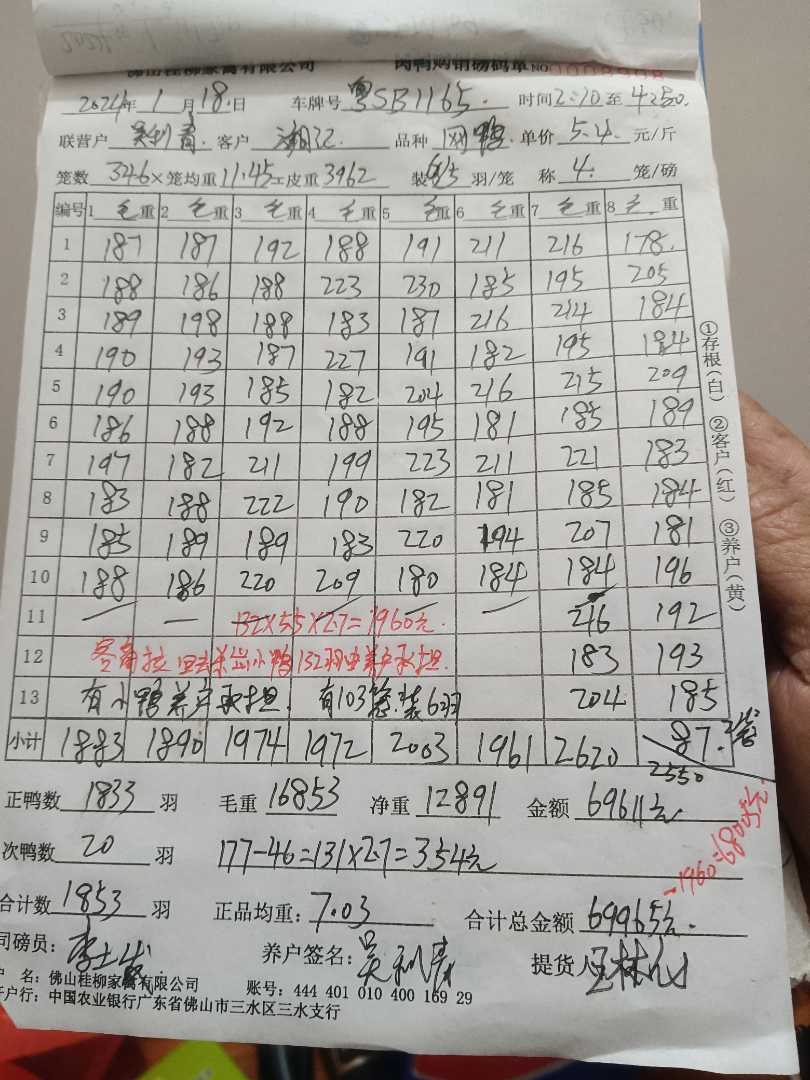 佛山桂柳家禽有限公司 肉鸭购销磅码单 NO
2024年 1 月 18 日 车牌号 粤SB1165. 时间 2:10 至 4:50.
联营户 吴利青. 客户 湘江. 品种 网鸭 单价 5.4. 元/斤
笼数 346 × 笼均重 11.45 = 皮重 3962 装 5 羽/笼 称 4. 笼/磅
编号 1 毛重 2 毛重 3 毛重 4 毛重 5 毛重 6 毛重 7 毛重 8 毛重
1 187 187 192 188 191 211 216 178.
2 188 186 188 223 230 185 195 205
3 189 198 188 183 187 216 214 184
4 190 193 187 227 191 182 195 184
5 190 193 185 182 204 216 215 209
6 186 188 192 188 195 181 185 189
7 197 182 211 199 223 211 221 183
8 183 188 222 190 182 181 185 184
9 185 189 189 183 220 194 207 181
10 188 186 220 209 180 184 184 196
11 — — 132×5.5×2.7=1960元. — 216 192
12 小鸭132羽由养户承担. 183 193
13 有小鸭养户承担. 有103笼.装6羽 204 185
小计 1883 1890 1974 1972 2003 1961 2620 87.2笼
2550
正鸭数 1833 羽 毛重 16853 净重 12891 金额 69611元.
-1960=68005元.
次鸭数 20 羽 177-46=131×2.7=354元
合计数 1853 羽 正品均重: 7.03 合计总金额 69965元.
司磅员: 养户签名: 吴利青 提货人
户 名: 佛山桂柳家禽有限公司 账号: 444 401 010 400 169 29
开户行: 中国农业银行广东省佛山市三水区三水支行
①存根(白) ②客户(红) ③养户(黄)